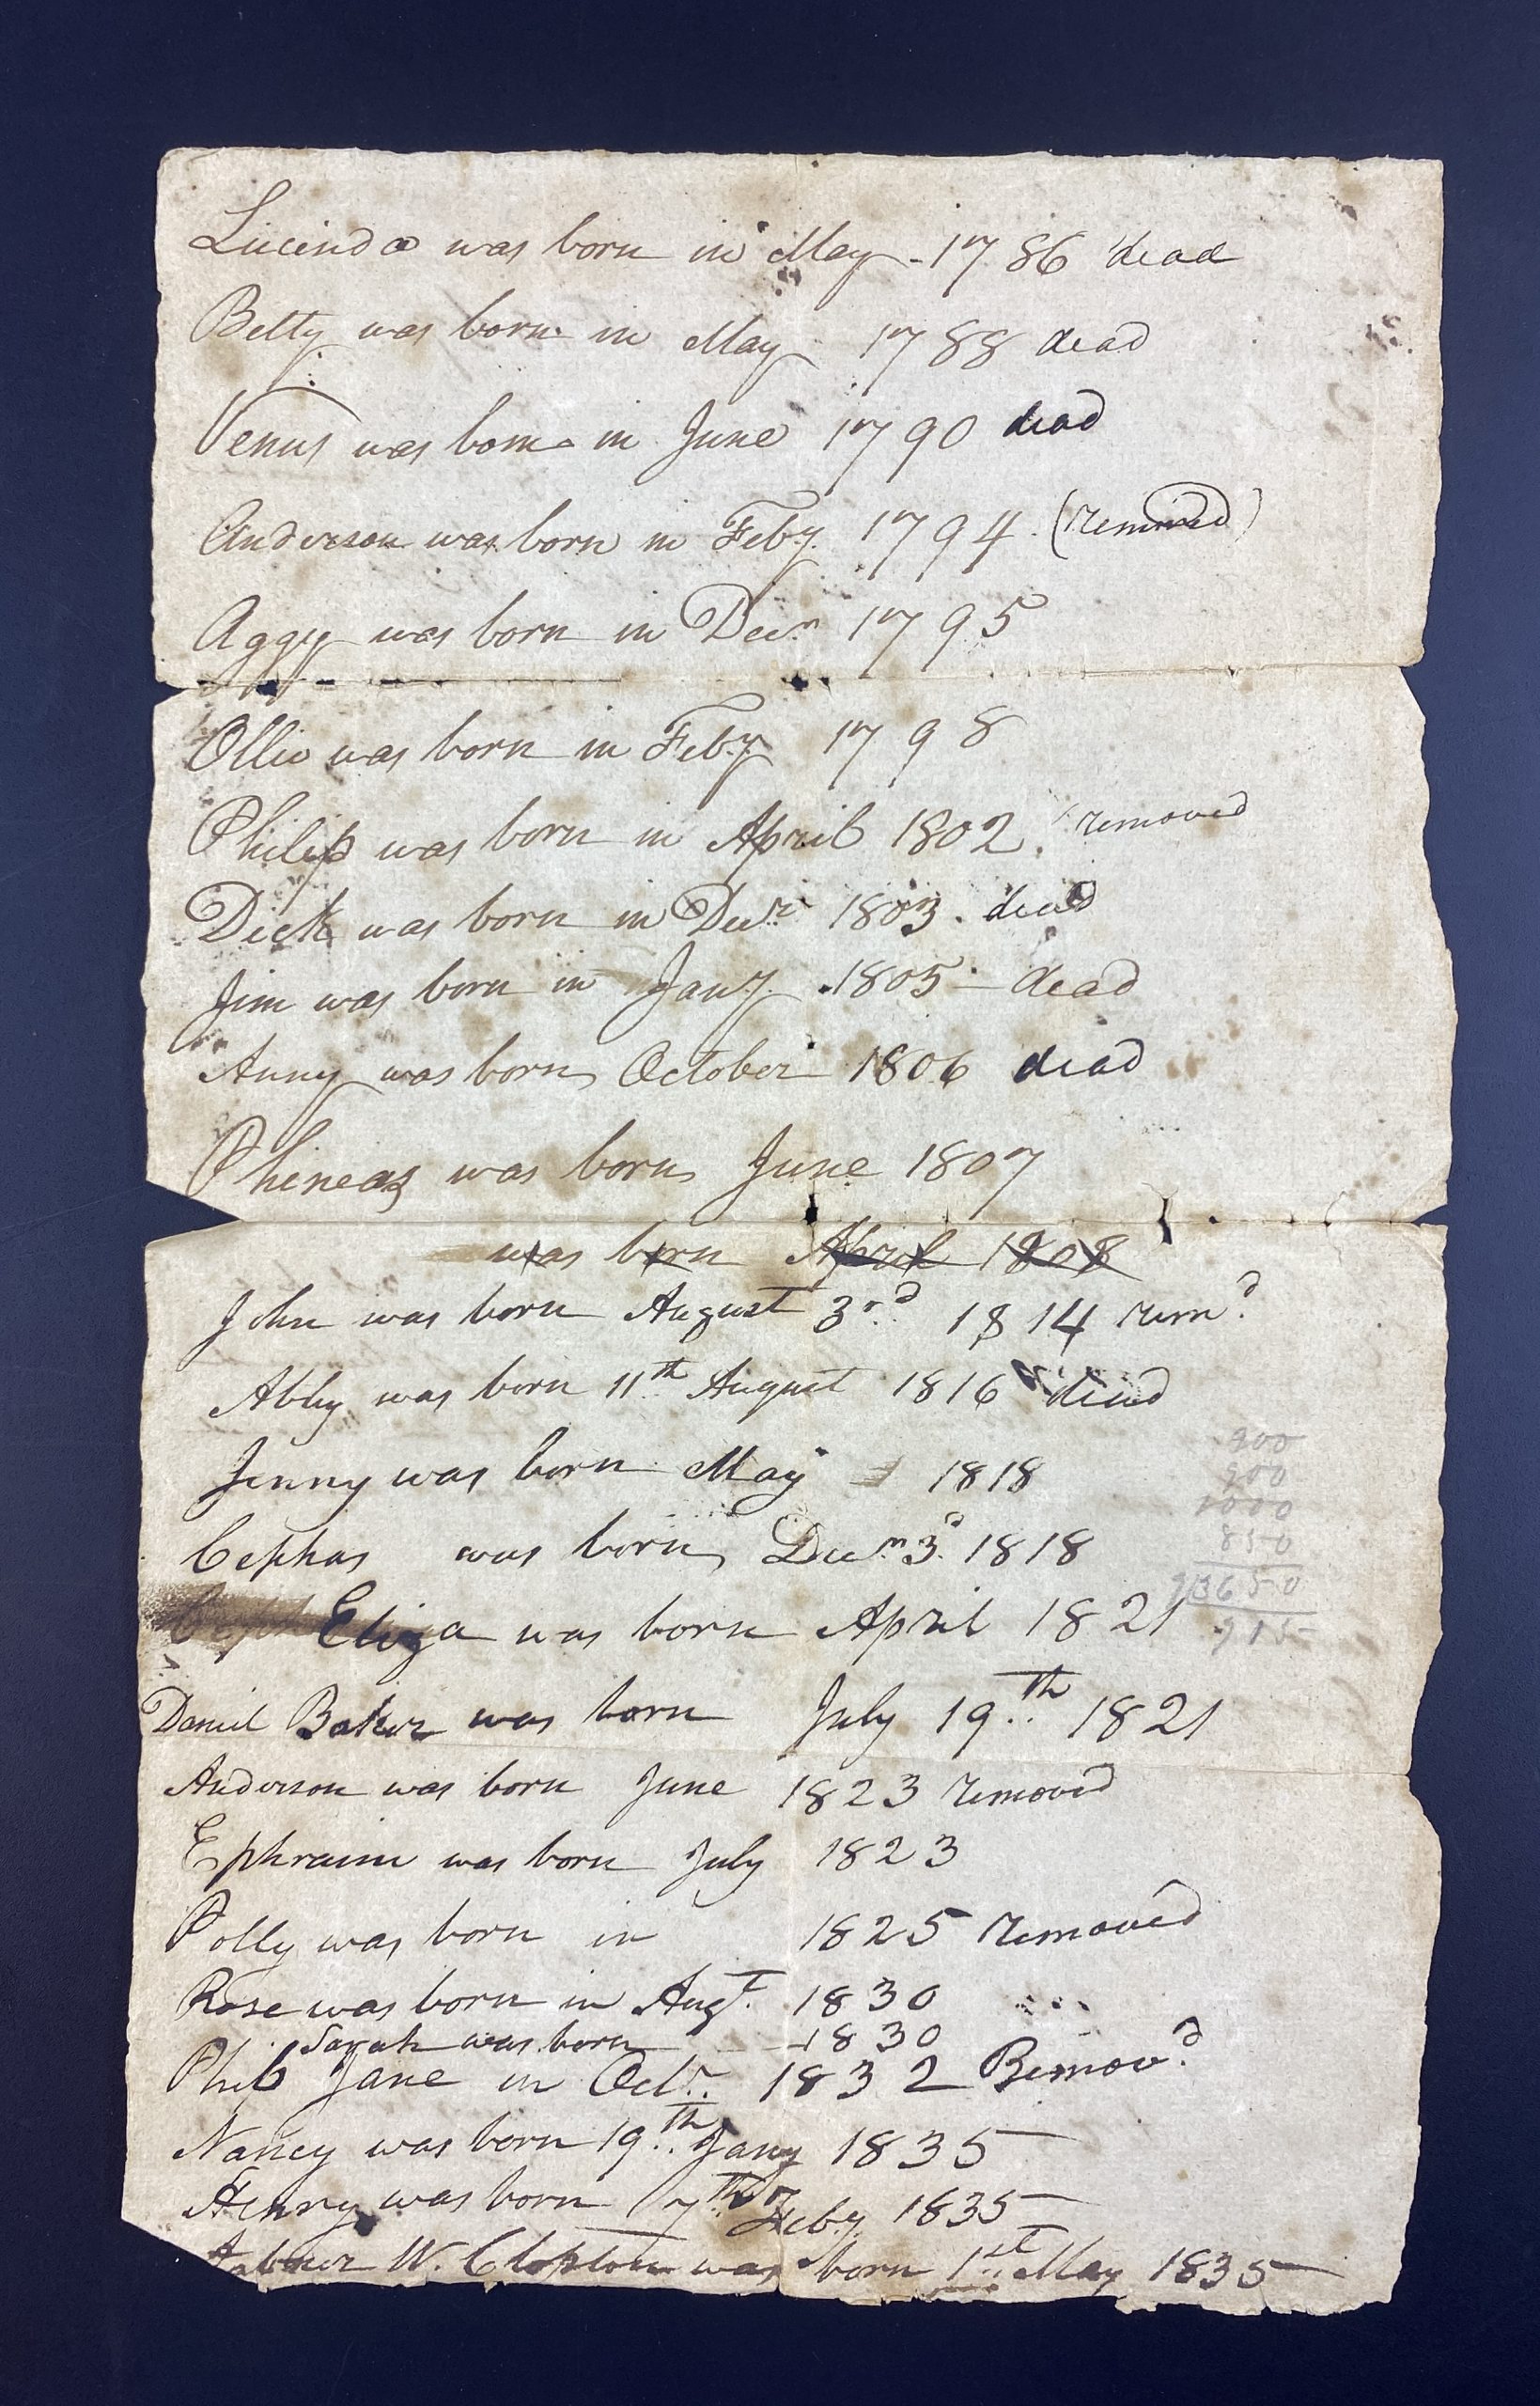 Lucinda was born in May - 1786 dead
Betty was born in May 1788 dead
Venus was born in June 1790 dead
Anderson was born in Feby. 1794. (removed)
Aggy was born in Decr. 1795
Ollie was born in Feby 1798
Philip was born in April 1802. removed
Dick was born in Decr. 1803. dead
Jim was born in Jany. 1805 - dead
Anny was born October 1806 dead
Phineas was born June 1807
was born April 1808
John was born August 3rd. 1814 remd.
Abby was born 11th August 1816 dead
Jenny was born May 1818
900
900
1000
850
3650
915
Cephas was born Decr. 3d. 1818
Eliza was born April 1821
Daniel Baker was born July 19th 1821
Anderson was born June 1823 removed
Ephraim was born July 1823
Polly was born in 1825 removed
Rose was born in Augt. 1830
Sarah was born 1830
Jane in Octr. 1832 Remov.d
Nancy was born 19th Jany 1835
Henry was born 7th Feby. 1835
Abner W. Clopton was born 1st May 1835